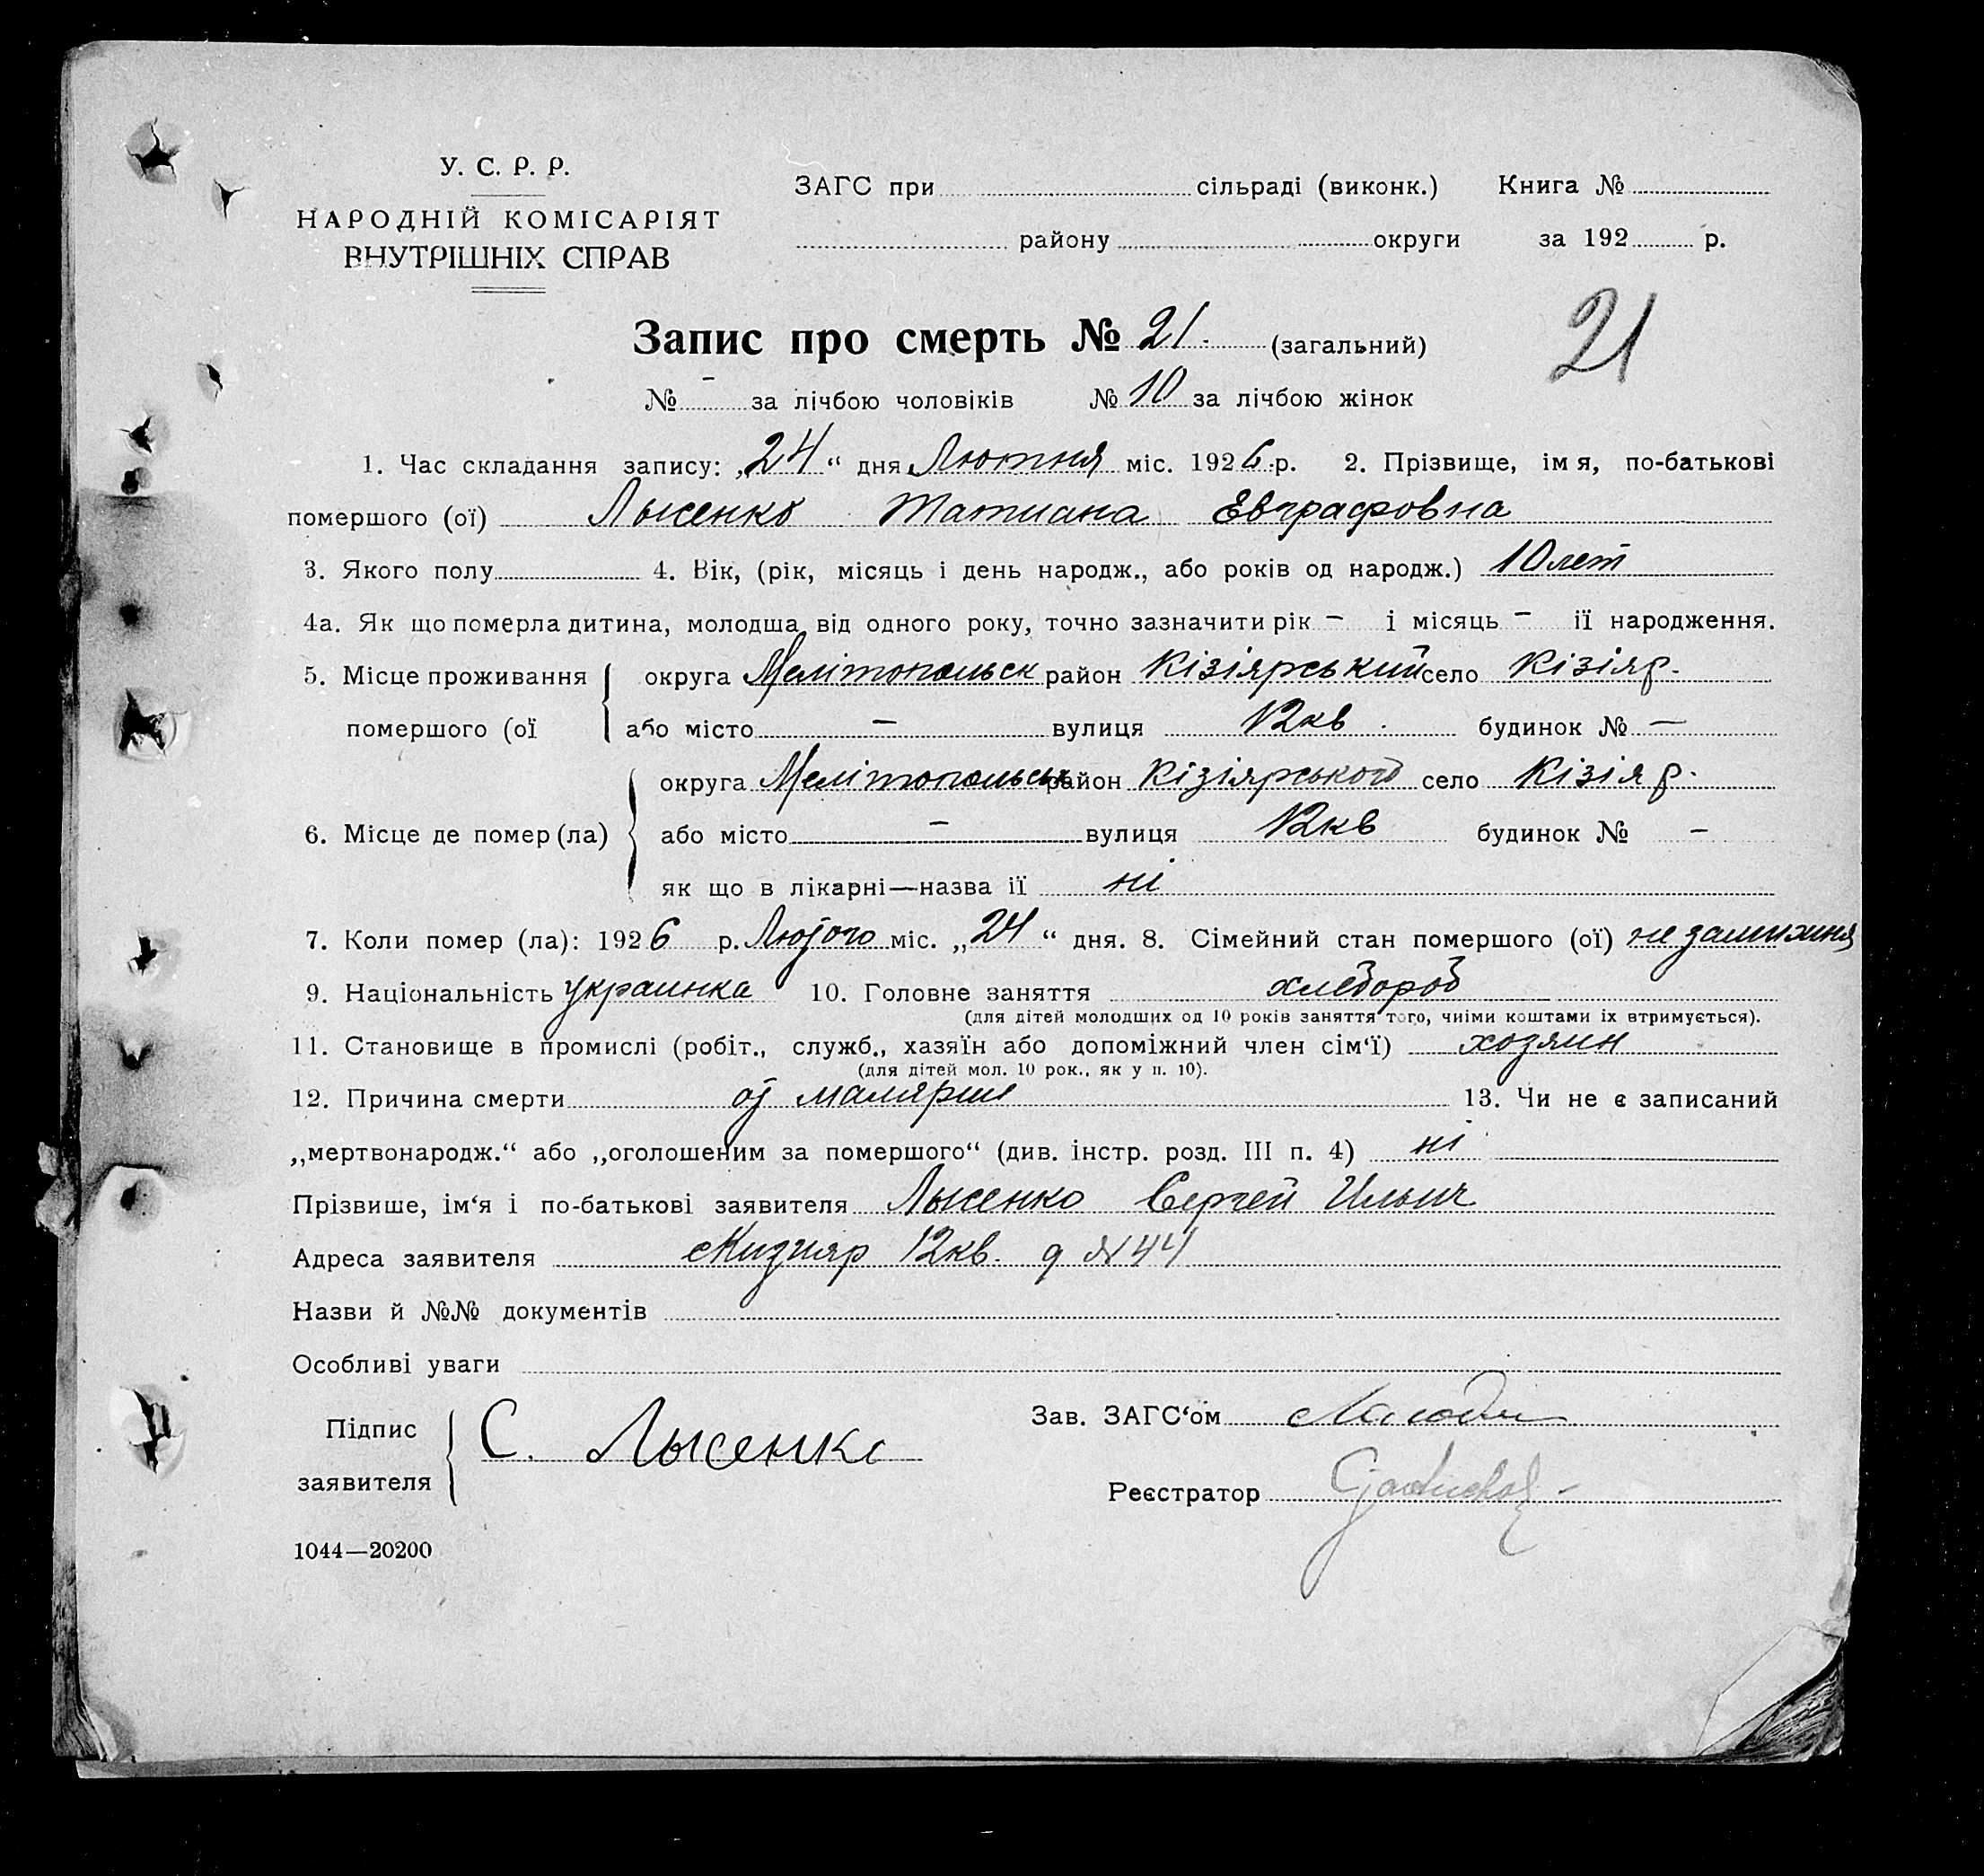 У. С. Р. Р.
НАРОДНІЙ КОМІСАРІЯТ
ВНУТРІШНІХ СПРАВ
ЗАГС при сільраді (виконк.) Книга №
району округи за 192 р.
Запис про смерть № 21. (загальний)
21
№ - за лічбою чоловіків № 10 за лічбою жінок
1. Час складання запису: „24“ дня Лютня міс. 1926 р. 2. Прізвище, імя, по-батькові
помершого (ої) Лысенко Татиана Евграфовна
3. Якого полу 4. Вік, (рік, місяць і день народж., або років од народж.) 10 лет
4а. Як що померла дитина, молодша від одного року, точно зазначити рік - і місяць - її народження.
5. Місце проживання округа Мелітопольск район Кізіярський село Кізіяр.
помершого (ої або місто - вулиця 12кв. будинок № -
округа Мелітопольськ район Кізіярського село Кізіяр.
6. Місце де помер (ла) або місто - вулиця 12кв будинок № -
як що в лікарні—назва її ні
7. Коли помер (ла): 1926 р. Лютого міс. „24“ дня. 8. Сімейний стан помершого (ої) не
9. Національність украинка 10. Головне заняття хлебороб
(для дітей молодших од 10 років заняття того, чиїми коштами їх втримується).
11. Становище в промислі (робіт., служб., хазяїн або допоміжний член сім‘ї) хозяин
(для дітей мол. 10 рок., як у п. 10).
12. Причина смерти от малярии 13. Чи не є записаний
„мертвонародж.“ або „оголошеним за помершого“ (див. інстр. розд. III п. 4) ні
Прізвише, ім‘я і по-батькові заявителя Лысенко Сергей Ильич
Адреса заявителя Кизияр 12кв. д №44
Назви й №№ документів
Особливі уваги
Підпис
заявителя С. Лысенко
Зав. ЗАГС‘ом
Реєстратор
1044—20200